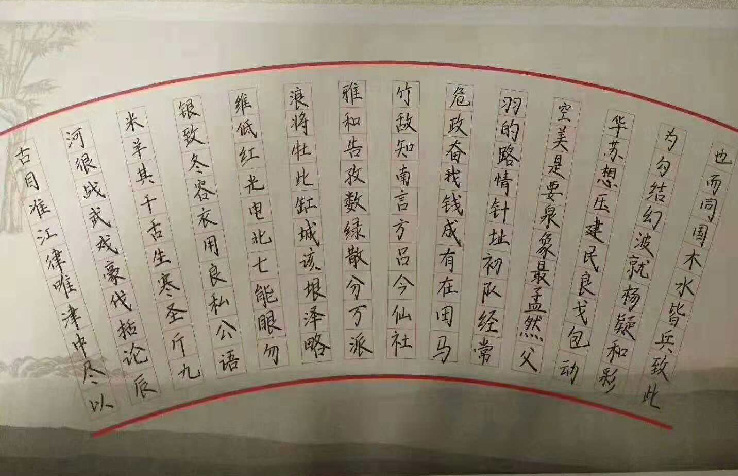 也而同周木水皆兵致此
为勾结幻波就杨疑和彩
华苏想压建民良戈包动
空美是要泉象最孟然父
羽的路情针址初队经常
危政奋我钱成有在田马
竹敌知南言方吕今仙社
雅和告孜数绿散分万派
浪将牡此缸城该垠泽略
维低红光电北七能眼勿
银致冬容衣用良私公语
米羊其千舌生寒圣斤九
河很战武戏豪伐括论辰
古目准江律唯津中尽以